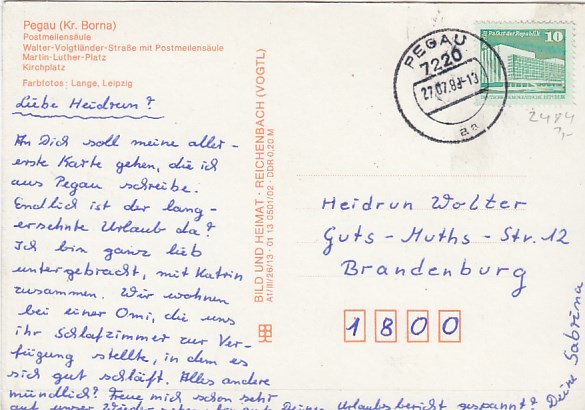 Pegau (Kr. Borna)
Postmeilensäule
Walter-Voigtländer-Straße mit Postmeilensäule
Martin-Luther-Platz
Kirchplatz
Farbfotos: Lange, Leipzig
Liebe Heidrun!
An Dich soll meine aller-
erste Karte gehen, die ich
aus Pegau schreibe.
Endlich ist der lang-
ersehnte Urlaub da!
Ich bin ganz lieb
untergebracht, mit Katrin
zusammen. Wir wohnen
bei einer Omi, die uns
ihr Schlafzimmer zur Ver-
fügung stellte, in dem es
sich gut schläft. Alles andere
mündlich! Freue mich schon sehr
auf unser Wiedersehen Deinen Urlaubsbericht gespannt!
Deine Sabrina
BILD UND HEIMAT · REICHENBACH (VOGTL)
A1/III/26/13 · 01 13 0601/02 · DDR 0,20 M
PEGAU
7220
27.07.83-13
Palast der Republik
10
2484
Heidrun Wolter
Guts-Muths-Str. 12
Brandenburg
1800